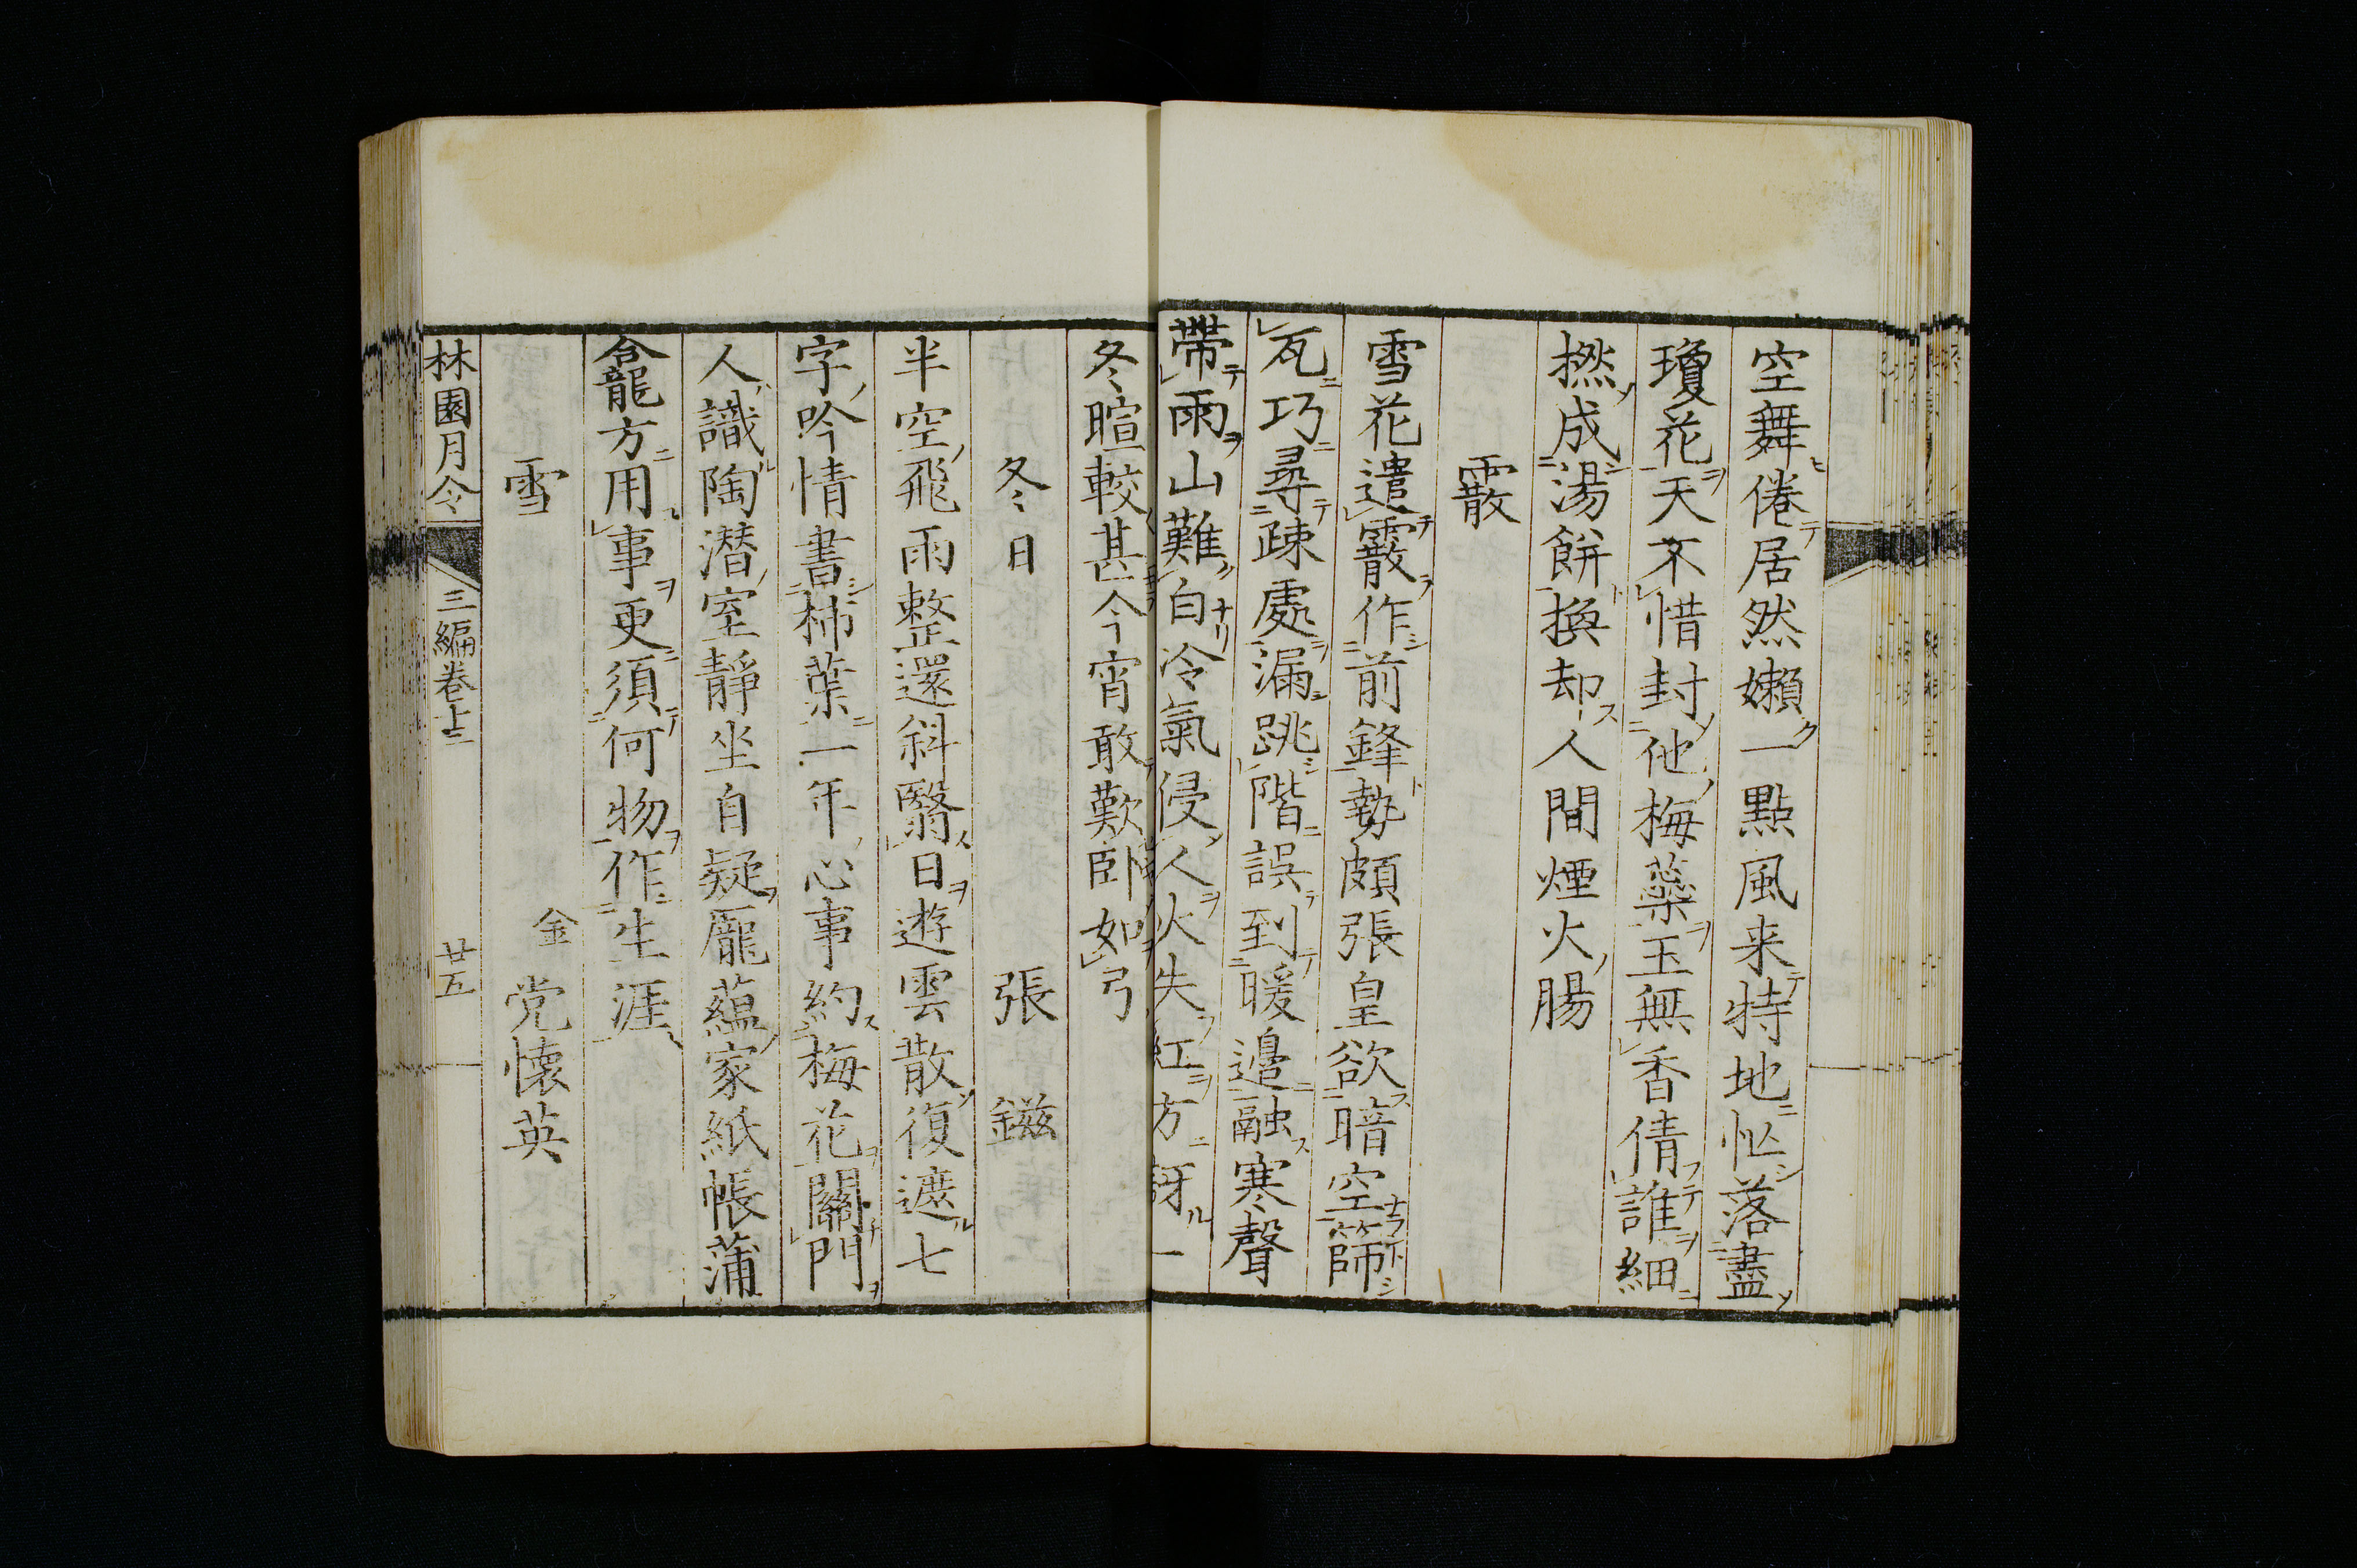 空舞倦居然嬾一點風来特地忙落盡
瓊花天不惜封他梅蘂玉無香倩誰細
撚成湯餅換却人間煙火腸
霰
雪花遣霰作前鋒勢頗張皇欲暗空篩
瓦巧尋疎處漏跳階誤到暖邉融寒聲
帶雨山難白冷氣侵人火失紅方訝一
冬暄較甚今宵敢歎卧如弓
冬日
張鎡
半空飛雨整還斜翳日遊雲散復遮七
字吟情書柿葉一年心事約梅花關門
人識陶潜室靜坐自疑龐蘊家紙帳蒲
龕方用事更須何物作生涯
雪
金
党懷英
林園月令
三編卷十二
廿五